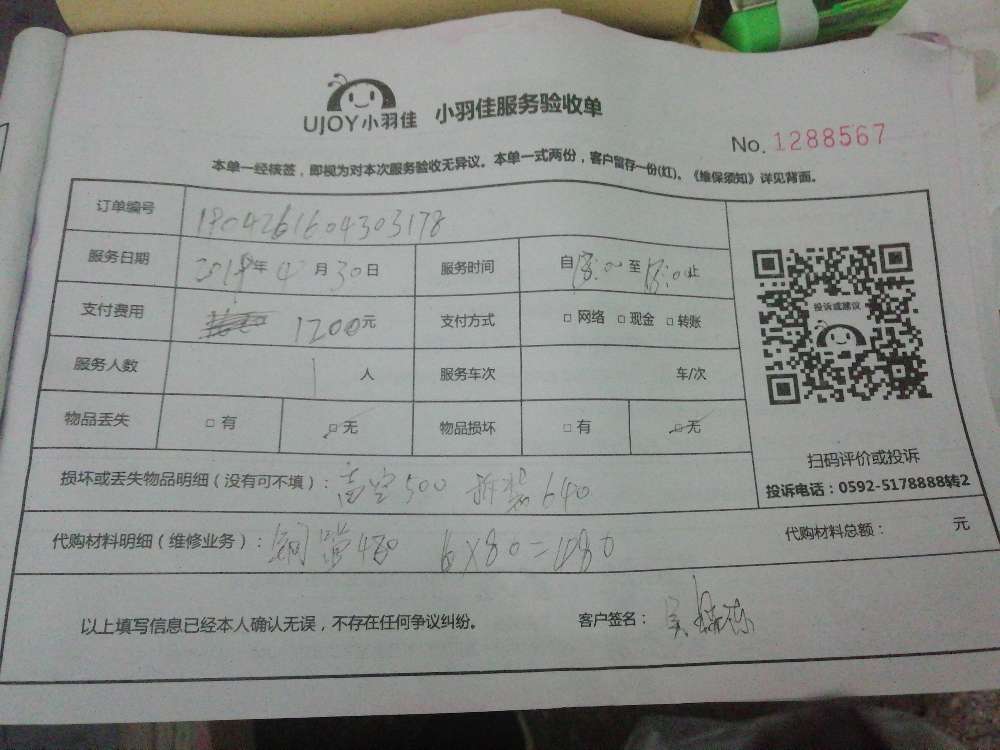 UJOY小羽佳 小羽佳服务验收单
No. 1288567
本单一经核签，即视为对本次服务验收无异议。本单一式两份，客户留存一份(红)。《维保须知》详见背面。
订单编号 1804261604303178
服务日期 2018年4月30日 服务时间 自 :00至 :00止
支付费用 1200元 支付方式 □ 网络 □ 现金 □ 转账
服务人数 1 人 服务车次 车/次
物品丢失 □ 有 □ 无 物品损坏 □ 有 □ 无
投诉或建议
扫码评价或投诉
投诉电话：0592-5178888转2
损坏或丢失物品明细（没有可不填）：高空500 拆装640
代购材料明细（维修业务）：铜管480 6×80= 代购材料总额： 元
以上填写信息已经本人确认无误，不存在任何争议纠纷。 客户签名：吴